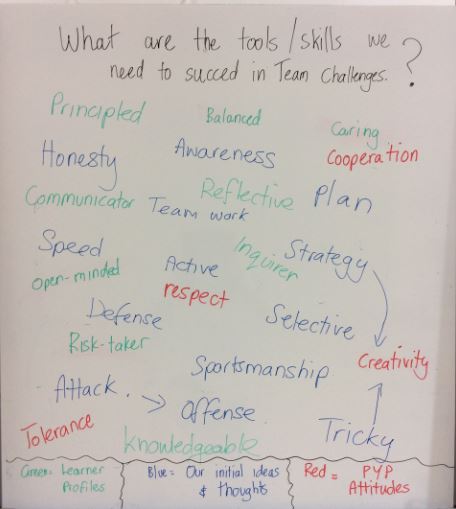 What are the tools/skills we
need to succed in Team Challenges. ?
Principled
Balanced
Caring
Cooperation
Honesty
Awareness
Communicator
Reflective
Plan
Team work
Speed
Inquirer
Strategy
open-minded
Active
respect
Defense
Selective
Risk-taker
Sportsmanship
Creativity
Attack. →
Offense
Tolerance
Tricky
knowledgeable
Green = Learner
Profiles
Blue = Our initial ideas
& thoughts
Red = PYP
Attitudes